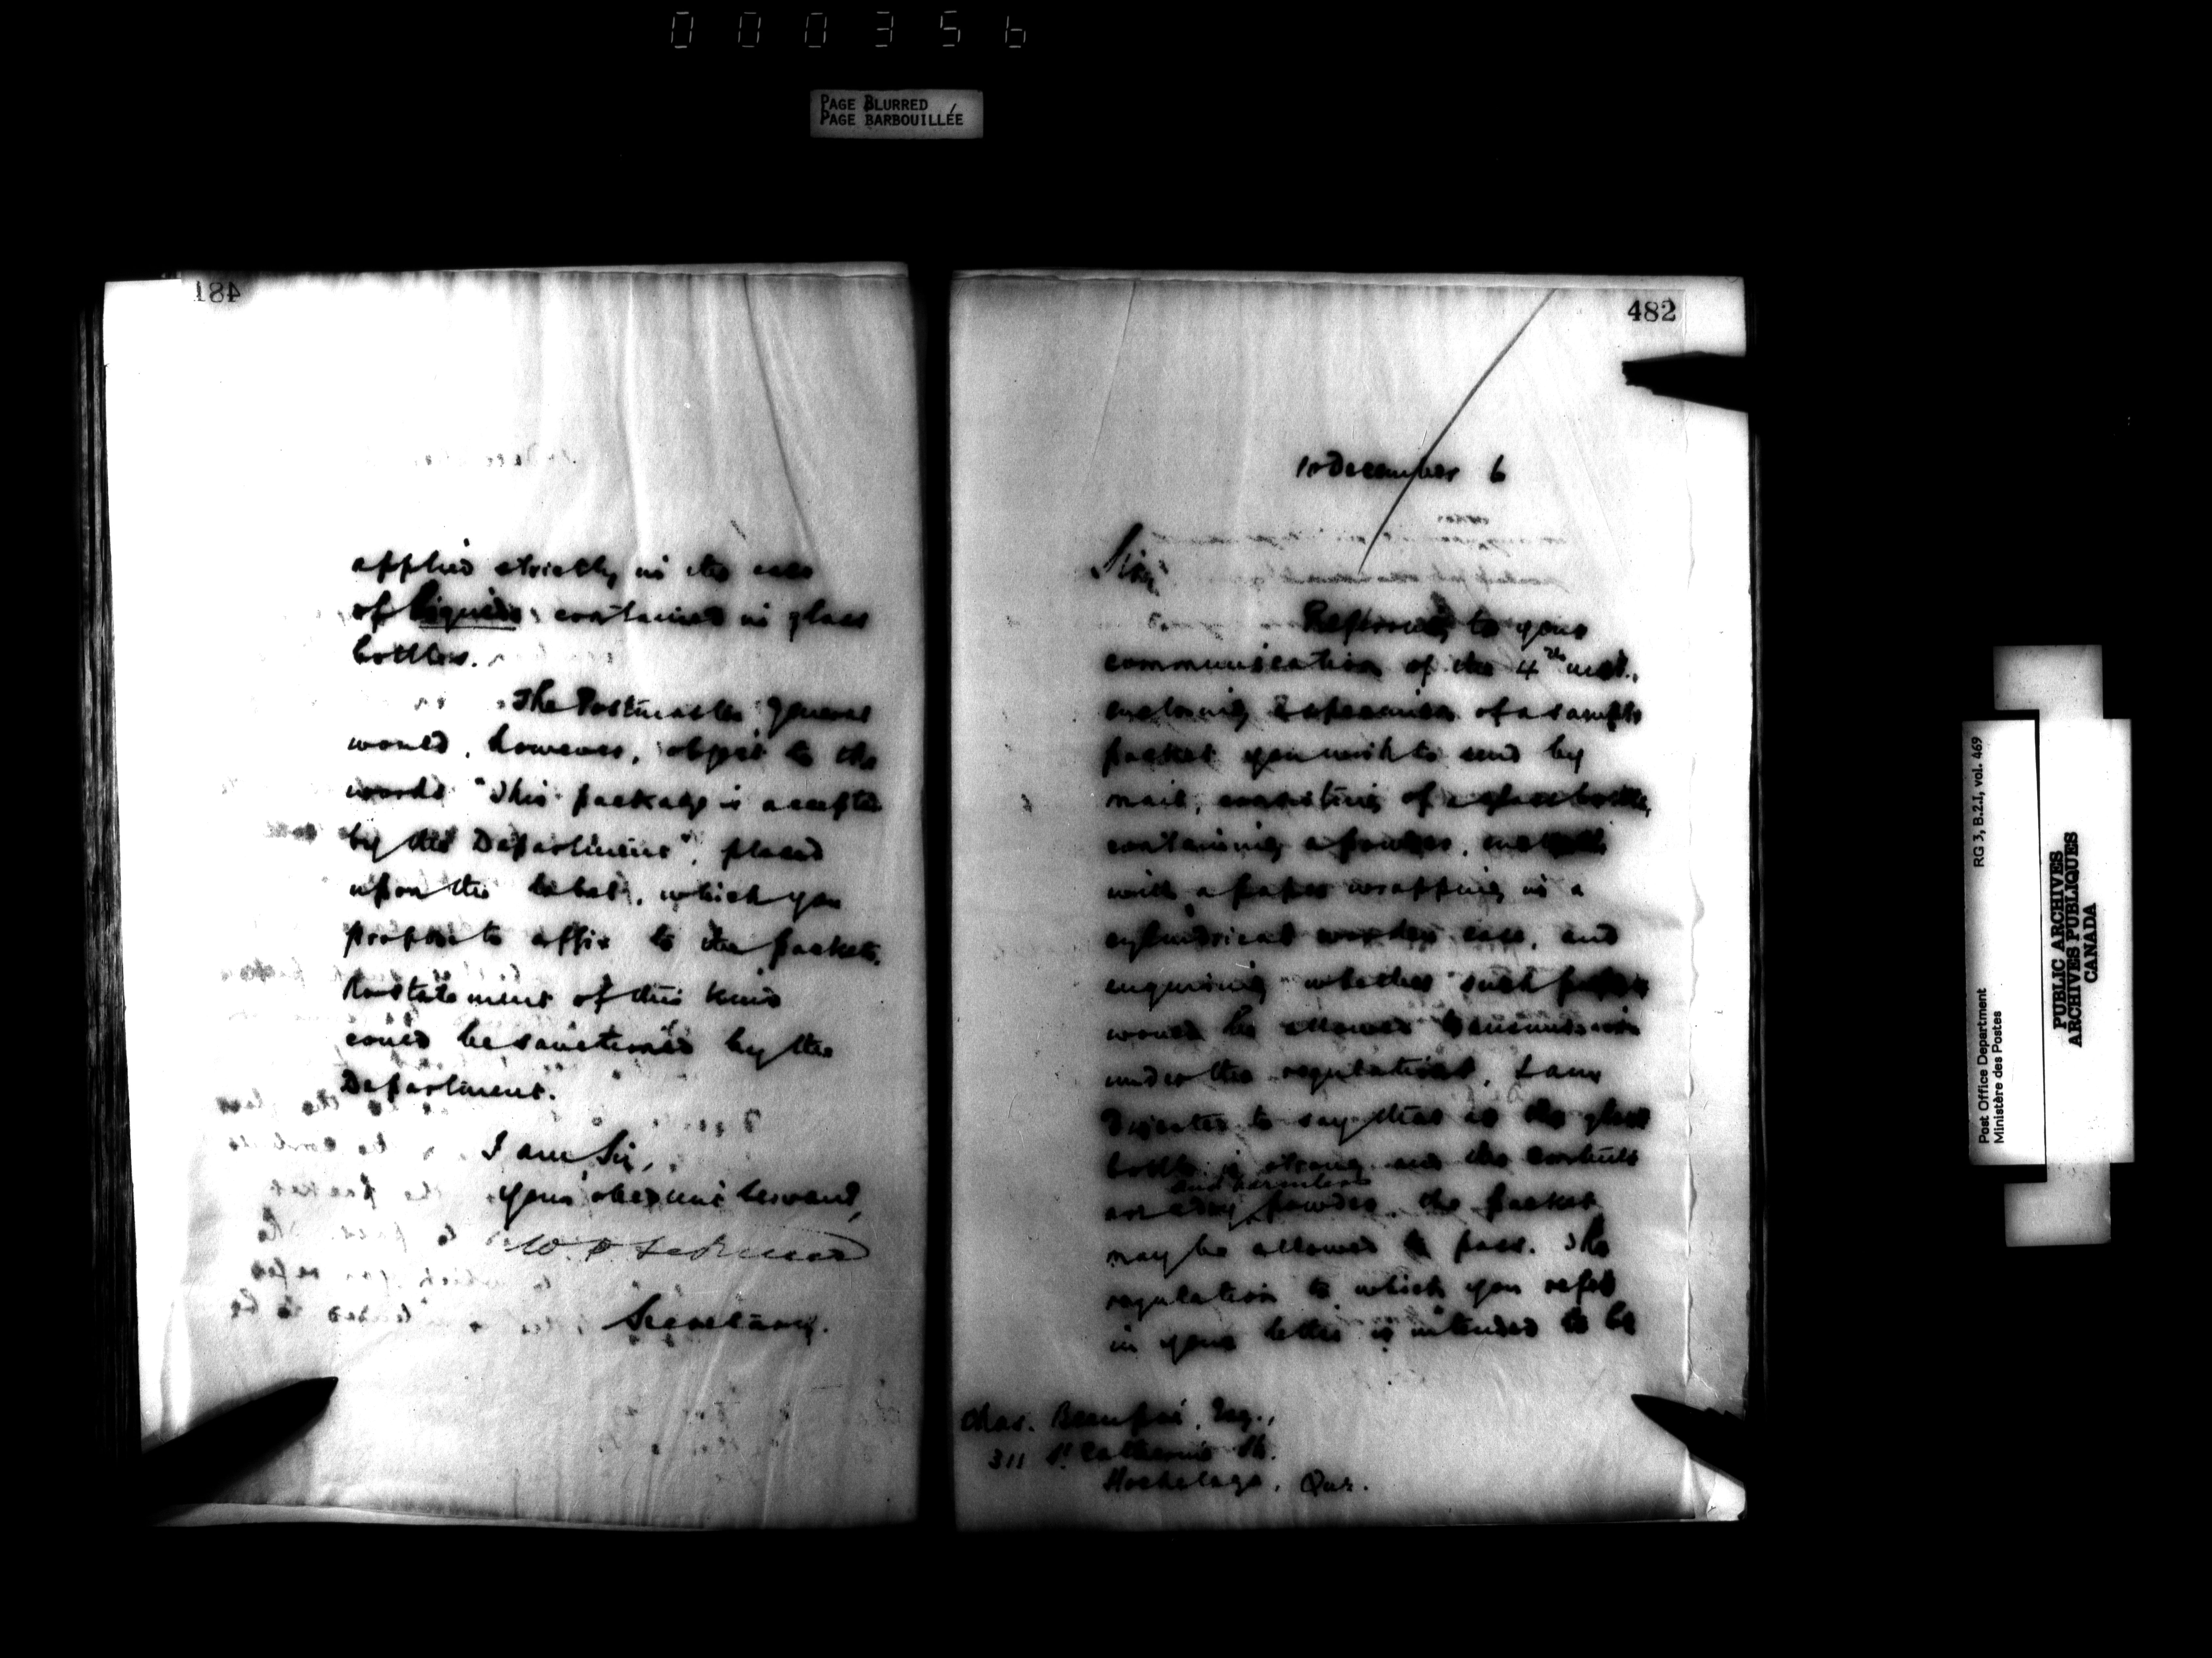 000356
PAGE BLURRED
PAGE BARBOUILLÉE
481
applied strictly in the case
of liquids contained in glass
bottles.
The Postmaster General
would, however, object to the
words "This package is accepted
by the Department", placed
upon the label, which you
propose to affix to the packets.
No statement of this kind
could be sanctioned by the
Department.
I am, Sir,
Your obedient Servant,
Secretary.
482
10 December 6
Sir,
Referring to your
communication of the 4th inst.,
enclosing specimen of a sample
packet you wish to send by
mail, consisting of a glass bottle,
containing a powder,
with a paper wrapping in a
cylindrical wooden case, and
enquiring whether such
would be allowed transmission
under the regulations, I am
Directed to say that as the glass
bottle is strong and the contents
and harmless
are a dry powder, the packet
may be allowed to pass. The
regulation to which you refer
in your letter is intended to be
Chas. Esq.,
311 St. Catherine St.
Hochelaga, Que.
RG 3, B.2.1, vol. 469
Post Office Department
Ministère des Postes
PUBLIC ARCHIVES
ARCHIVES PUBLIQUES
CANADA